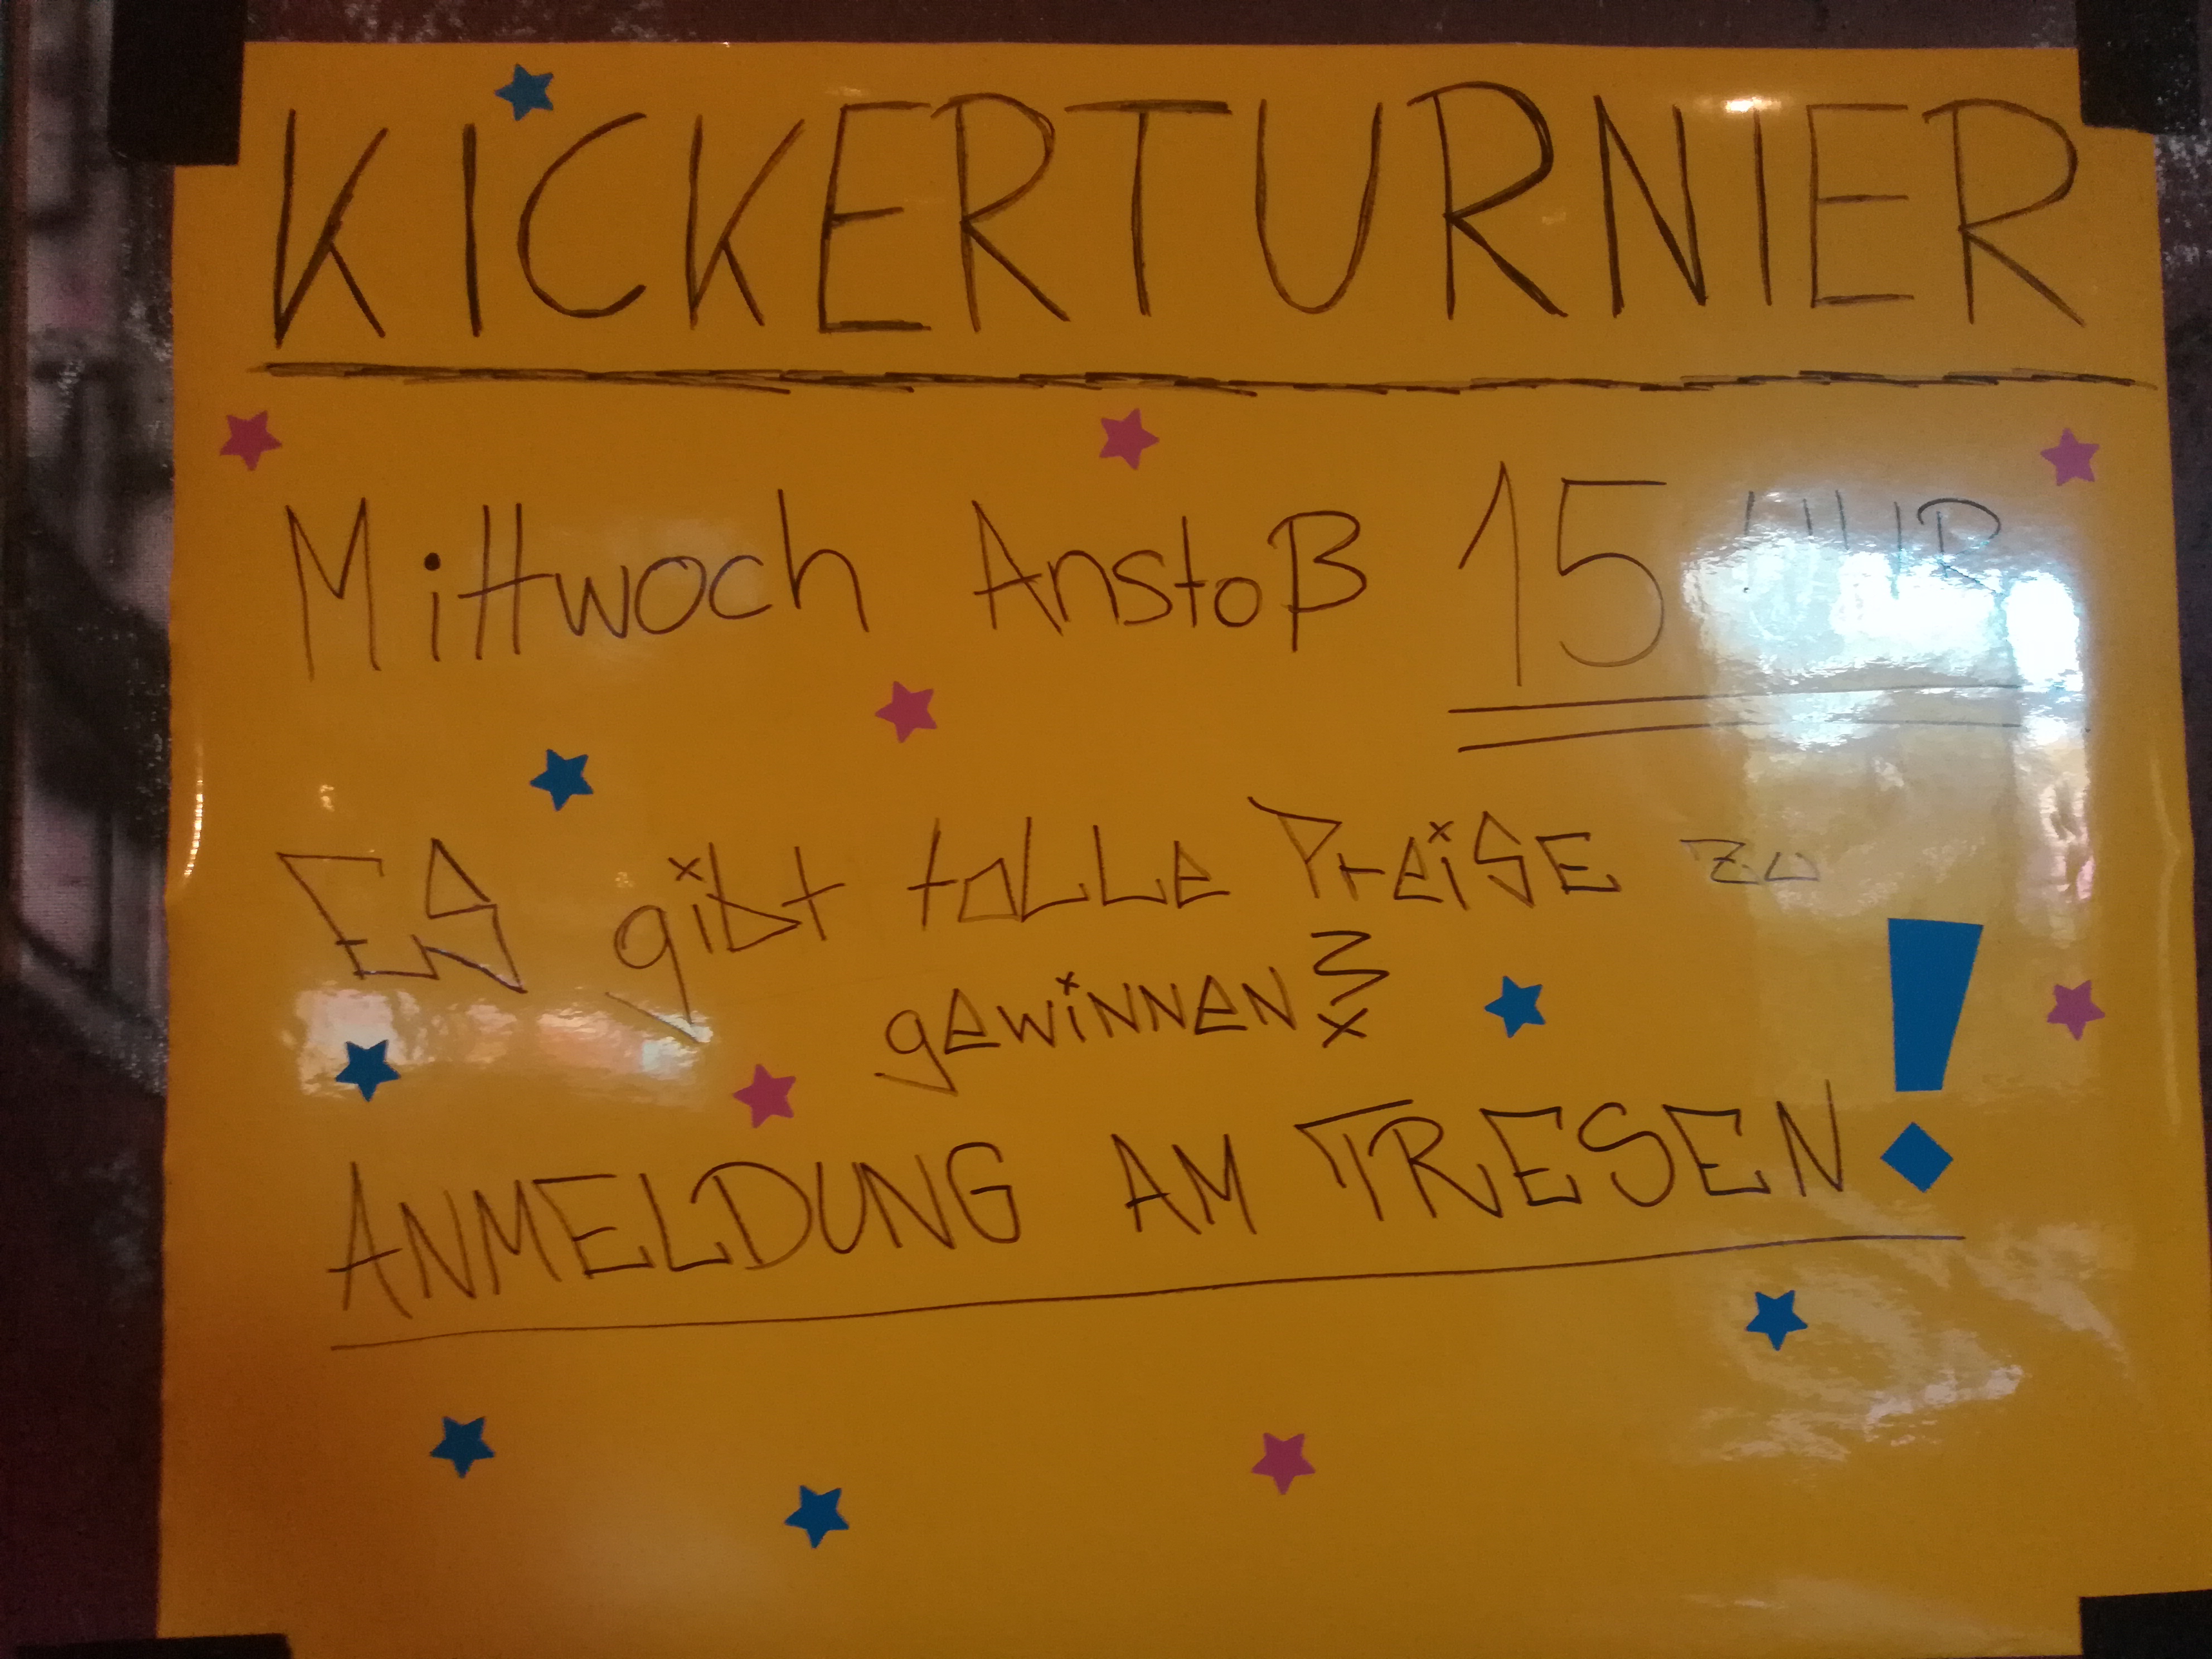 KICKERTURNIER
Mittwoch Anstoß 15 UHR
ES gibt tolle Preise zu
gewinnen!
ANMELDUNG AM TRESEN!